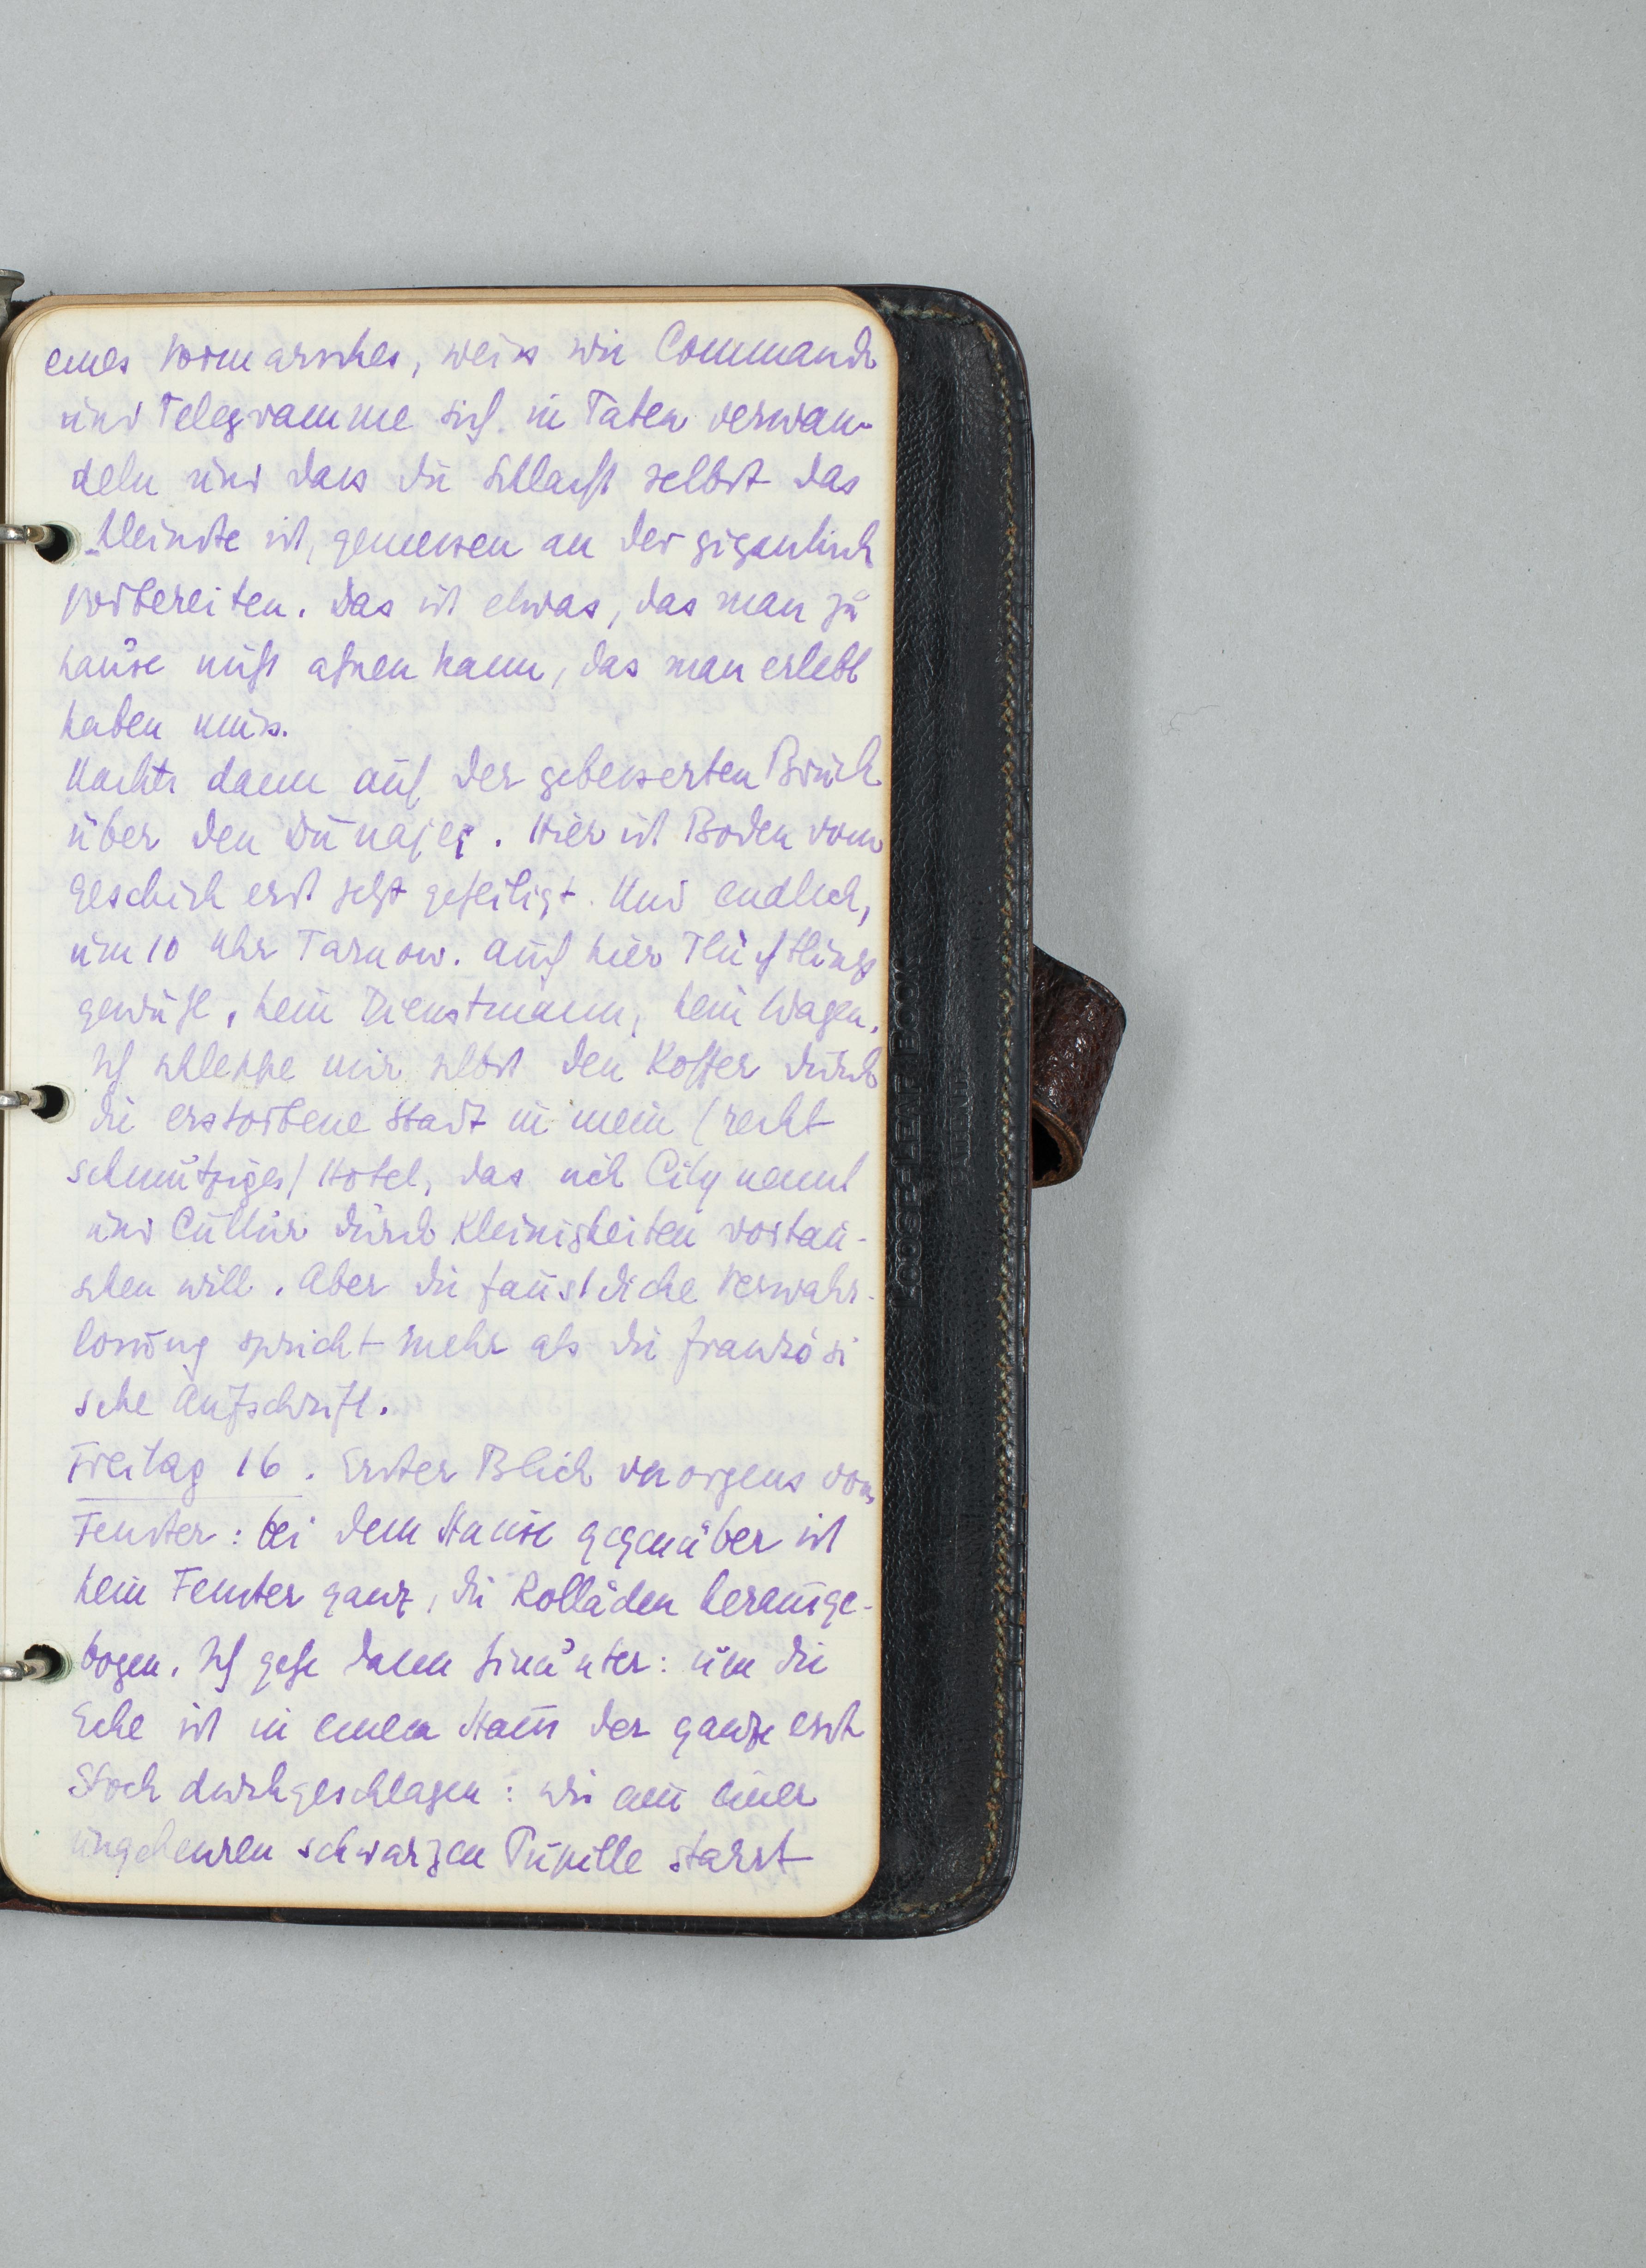 eines Vormarsches, weiss wie Commando
und Telegramme sich in Taten verwan-
deln und dass die Schlacht selbst das
kleinste ist, gemessen an der gigantisch
vorbereiten. Das ist etwas, das man zu
hause nicht ahnen kann, das man erlebt
haben muss.
Nachts dann auf der gebesserten Brücke
über den Dunajec. Hier ist Boden vom
Geschick erst jetzt geheiligt. Und endlich,
um 10 Uhr Tarnow. Auch hier Flüchtlings
gewühl, kein Dienstmann, kein Wagen.
Ich schleppe mir selbst den Koffer durch
die erstorbene Stadt in mein (recht
schmutziges) Hotel, das sich City nennt
und Cultur durch Kleinigkeiten vortäu-
schen will. Aber die faustdicke Verwahr-
losung spricht mehr als die französi
sche Aufschrift.
Freitag 16. Erster Blick morgens vom
Fenster: bei dem Hause gegenüber ist
kein Fenster ganz, die Rolläden herausge-
bogen. Ich gehe dann hinunter: um die
Ecke ist in einem Haus der ganze erste
Stock durchgeschlagen: wie aus einer
ungeheuren schwarzen Pupille starrt
LOOSE-LEAF BOOK